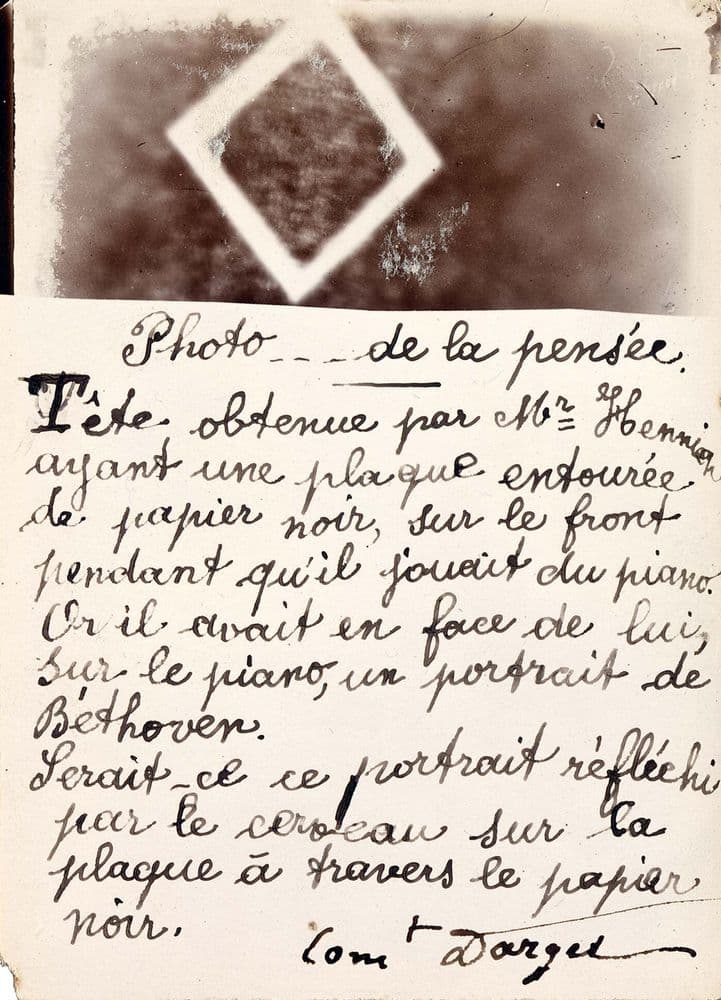 Photo ___ de la pensée.
Tête obtenue par Mr Hennion
ayant une plaque entourée
de papier noir, sur le front
pendant qu'il jouait du piano.
Or il avait en face de lui,
sur le piano, un portrait de
Béthoven.
Serait-ce ce portrait réfléchi
par le cerveau sur la
plaque à travers le papier
noir.
Comt Darget